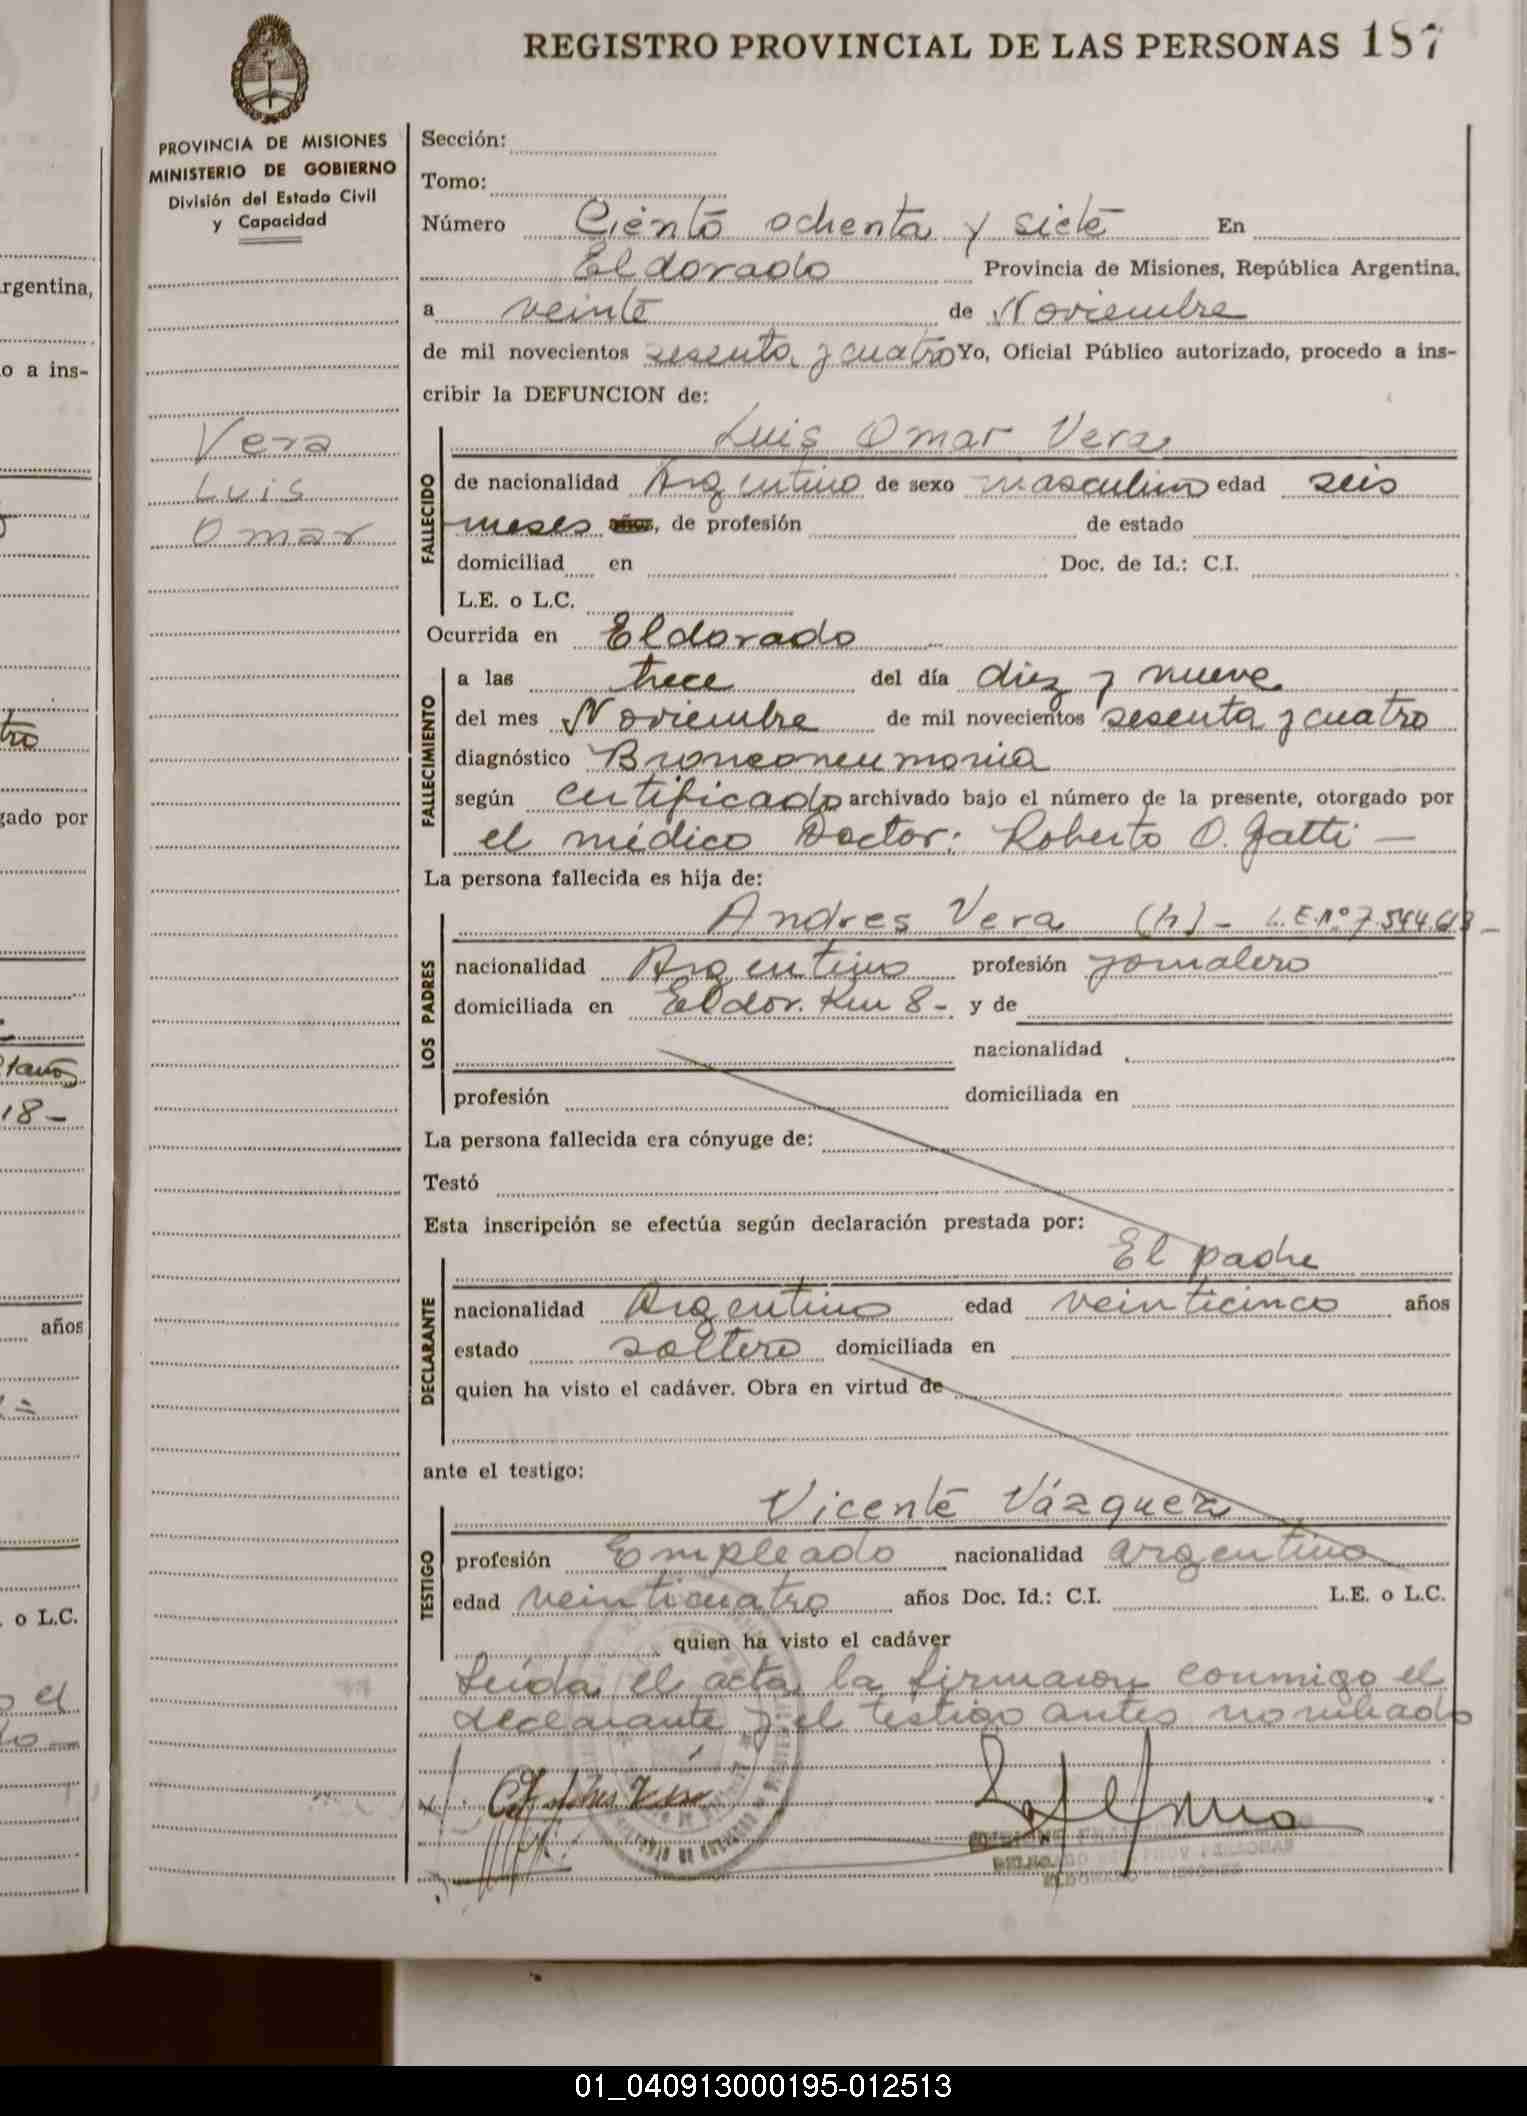 REGISTRO PROVINCIAL DE LAS PERSONAS 187
PROVINCIA DE MISIONES
MINISTERIO DE GOBIERNO
División del Estado Civil
y Capacidad
Vera
Luis
Omar
Sección:
Tomo:
Número Ciento ochenta y siete En
Eldorado Provincia de Misiones, República Argentina,
a veinte de Noviembre
de mil novecientos sesenta y cuatro Yo, Oficial Público autorizado, procedo a ins-
cribir la DEFUNCION de:
Luis Omar Vera
FALLECIDO
de nacionalidad Argentino de sexo masculino edad seis
meses años, de profesión de estado
domiciliad en Doc. de Id.: C.I.
L.E. o L.C.
Ocurrida en Eldorado
FALLECIMIENTO
a las trece del día diez y nueve
del mes Noviembre de mil novecientos sesenta y cuatro
diagnóstico Bronconeumonia
según certificado archivado bajo el número de la presente, otorgado por
el médico Doctor: Roberto O. Gatti —
La persona fallecida es hija de:
LOS PADRES
Andres Vera (h) - L.E.Nº 7.544.613 -
nacionalidad Argentino profesión jornalero
domiciliada en Eldor. Km 8 - y de
nacionalidad
profesión domiciliada en
La persona fallecida era cónyuge de:
Testó
Esta inscripción se efectúa según declaración prestada por:
El padre
DECLARANTE
nacionalidad Argentino edad veinticinco años
estado soltero domiciliada en
quien ha visto el cadáver. Obra en virtud de
ante el testigo:
Vicente Vázquez
TESTIGO
profesión Empleado nacionalidad argentino
edad veinticuatro años Doc. Id.: C.I. L.E. o L.C.
quien ha visto el cadáver
Leída el acta la firmaron conmigo el
declarante y el testigo antes nombrado
rgentina,
o a ins-
gado por
18-
años
o L.C.
o el
01_040913000195-012513